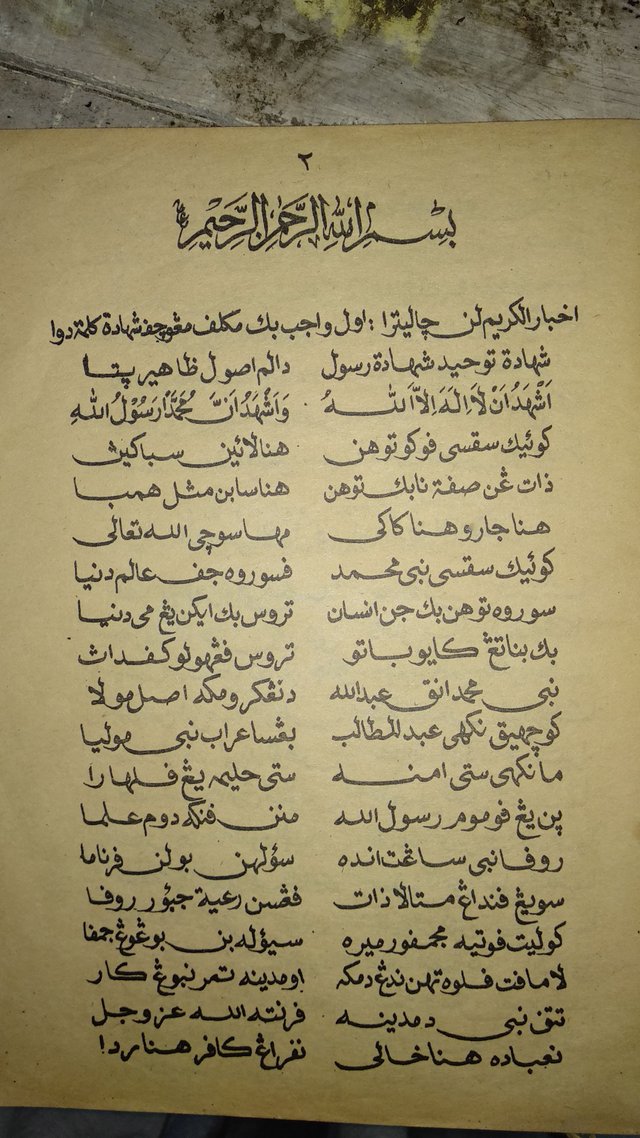 ٢
بِسْمِ اللهِ الرَّحْمٰنِ الرَّحِيْمِ
اخبار الكريم لن چاليترا : اول واجب بك مكلف مڠوچف شهادة كلمة دوا
شهادة توحيد شهادة رسول دالم اصول ظاهير پتا
اَشْهَدُ اَنْ لَا اِلٰهَ اِلَّا اللهُ وَاَشْهَدُ اَنَّ مُحَمَّدًا رَسُوْلُ اللهِ
كوئيك سقسى فوكو توهن هنا لائين سباكين
ذات ڠن صفة نابك توهن هنا سابن مثل همبا
هنا جارو هنا كاكى مها سوچى الله تعالى
كوئيك سقسى نبى محمد فسوروه جف عالم دنيا
سوروه توهن بك جن انسان تروس بك ايكن يڠ مى دنيا
بك بناتڠ كايو باتو تروس فڠهولو كفداث
نبى محمد انق عبد الله دنڠكرو مكه اصل مولا
كوچهيق نكهى عبد المطالب بڠسا عراب نبى موليا
مانكهى ستى امنه ستى حليمه يڠ فلهارا
ين يڠ فوموم رسول الله منن فنكه دوم علما
روفا نبى ساڠت انده سؤلهن بولن فرناما
سويڠ فنداڠ متالا ذات فڠسن رعية جبؤر روفا
كوليت فوتيه مجمفور ميره سيؤله بن بوڠوڠ جمفا
لاما فت فلوه تهن ندڠ دمكه او مدينه تمر نبوڠ كار
تتف نبى دمدينه فرنته الله عز وجل
نعباده هنا خالى نفراڠ كافر هنا رد!